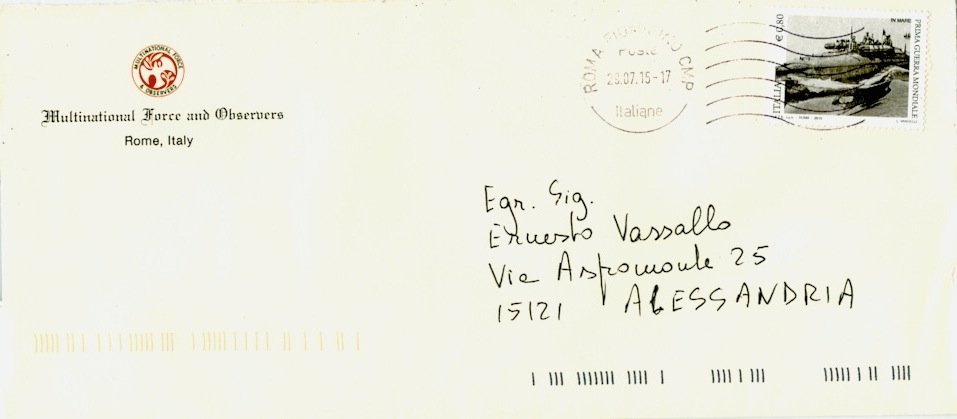 MULTINATIONAL FORCE
& OBSERVERS
Multinational Force and Observers
Rome, Italy
ROMA FIUMICINO CMP
Poste
28.07.15-17
Italiane
€ 0,80
ITALIA
IN MARE
PRIMA GUERRA MONDIALE
Egr. Sig.
Ernesto Vassallo
Via Aspromonte 25
15121 ALESSANDRIA